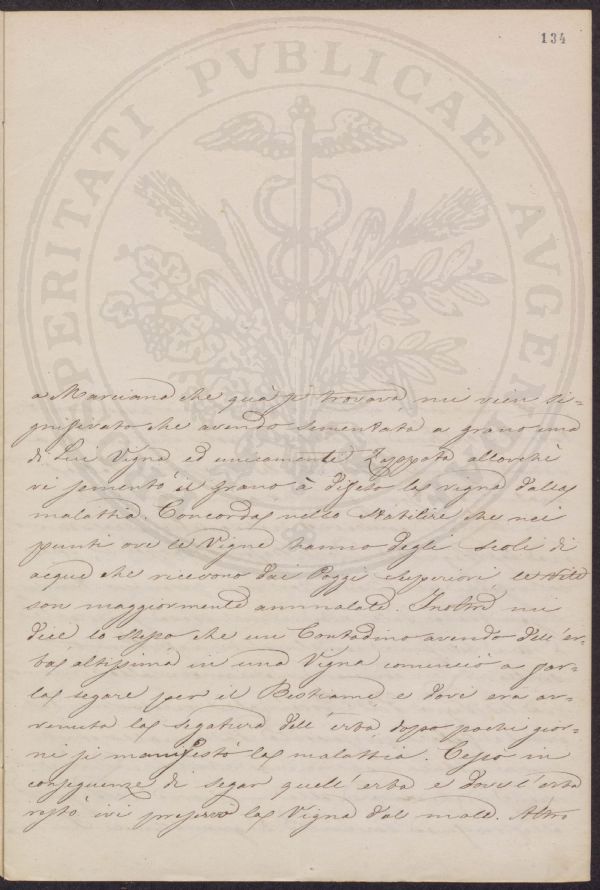 134
PROSPERITATI PVBLICAE AVGENDAE
a Marciana che quà si trovava mi vien si=
gnificato che avendo sementata a grano una
di Lui Vigna ed unicamente Zappata allorchè
vi sementò il grano à difeso la vigna dalla
malattia. Concorda nello stabilire che nei
punti ove le Vigne hanno degli scoli di
acque che ricevono dai Poggi superiori, le viti
son maggiormente ammalate. Inoltre mi
dice lo stesso che un Contadino avendo dell'er=
ba altissima in una Vigna cominciò a far=
la segare per il Bestiame e dove era av=
venuta la segatura dell'erba dopo pochi gior=
ni si manifestò la malattia. Cessò in
conseguenze di segar quell'erba e dove l'erba
restò ivi preservò la Vigna dal male. Altro